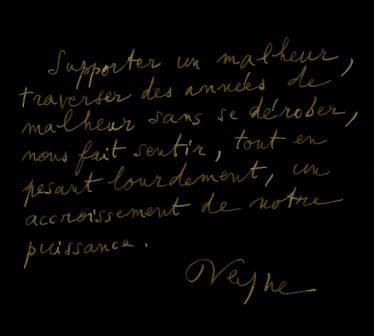 Supporter un malheur,
traverser des années de
malheur sans se dérober,
nous fait sentir, tout en
pesant lourdement, un
accroissement de notre
puissance.
Veyne